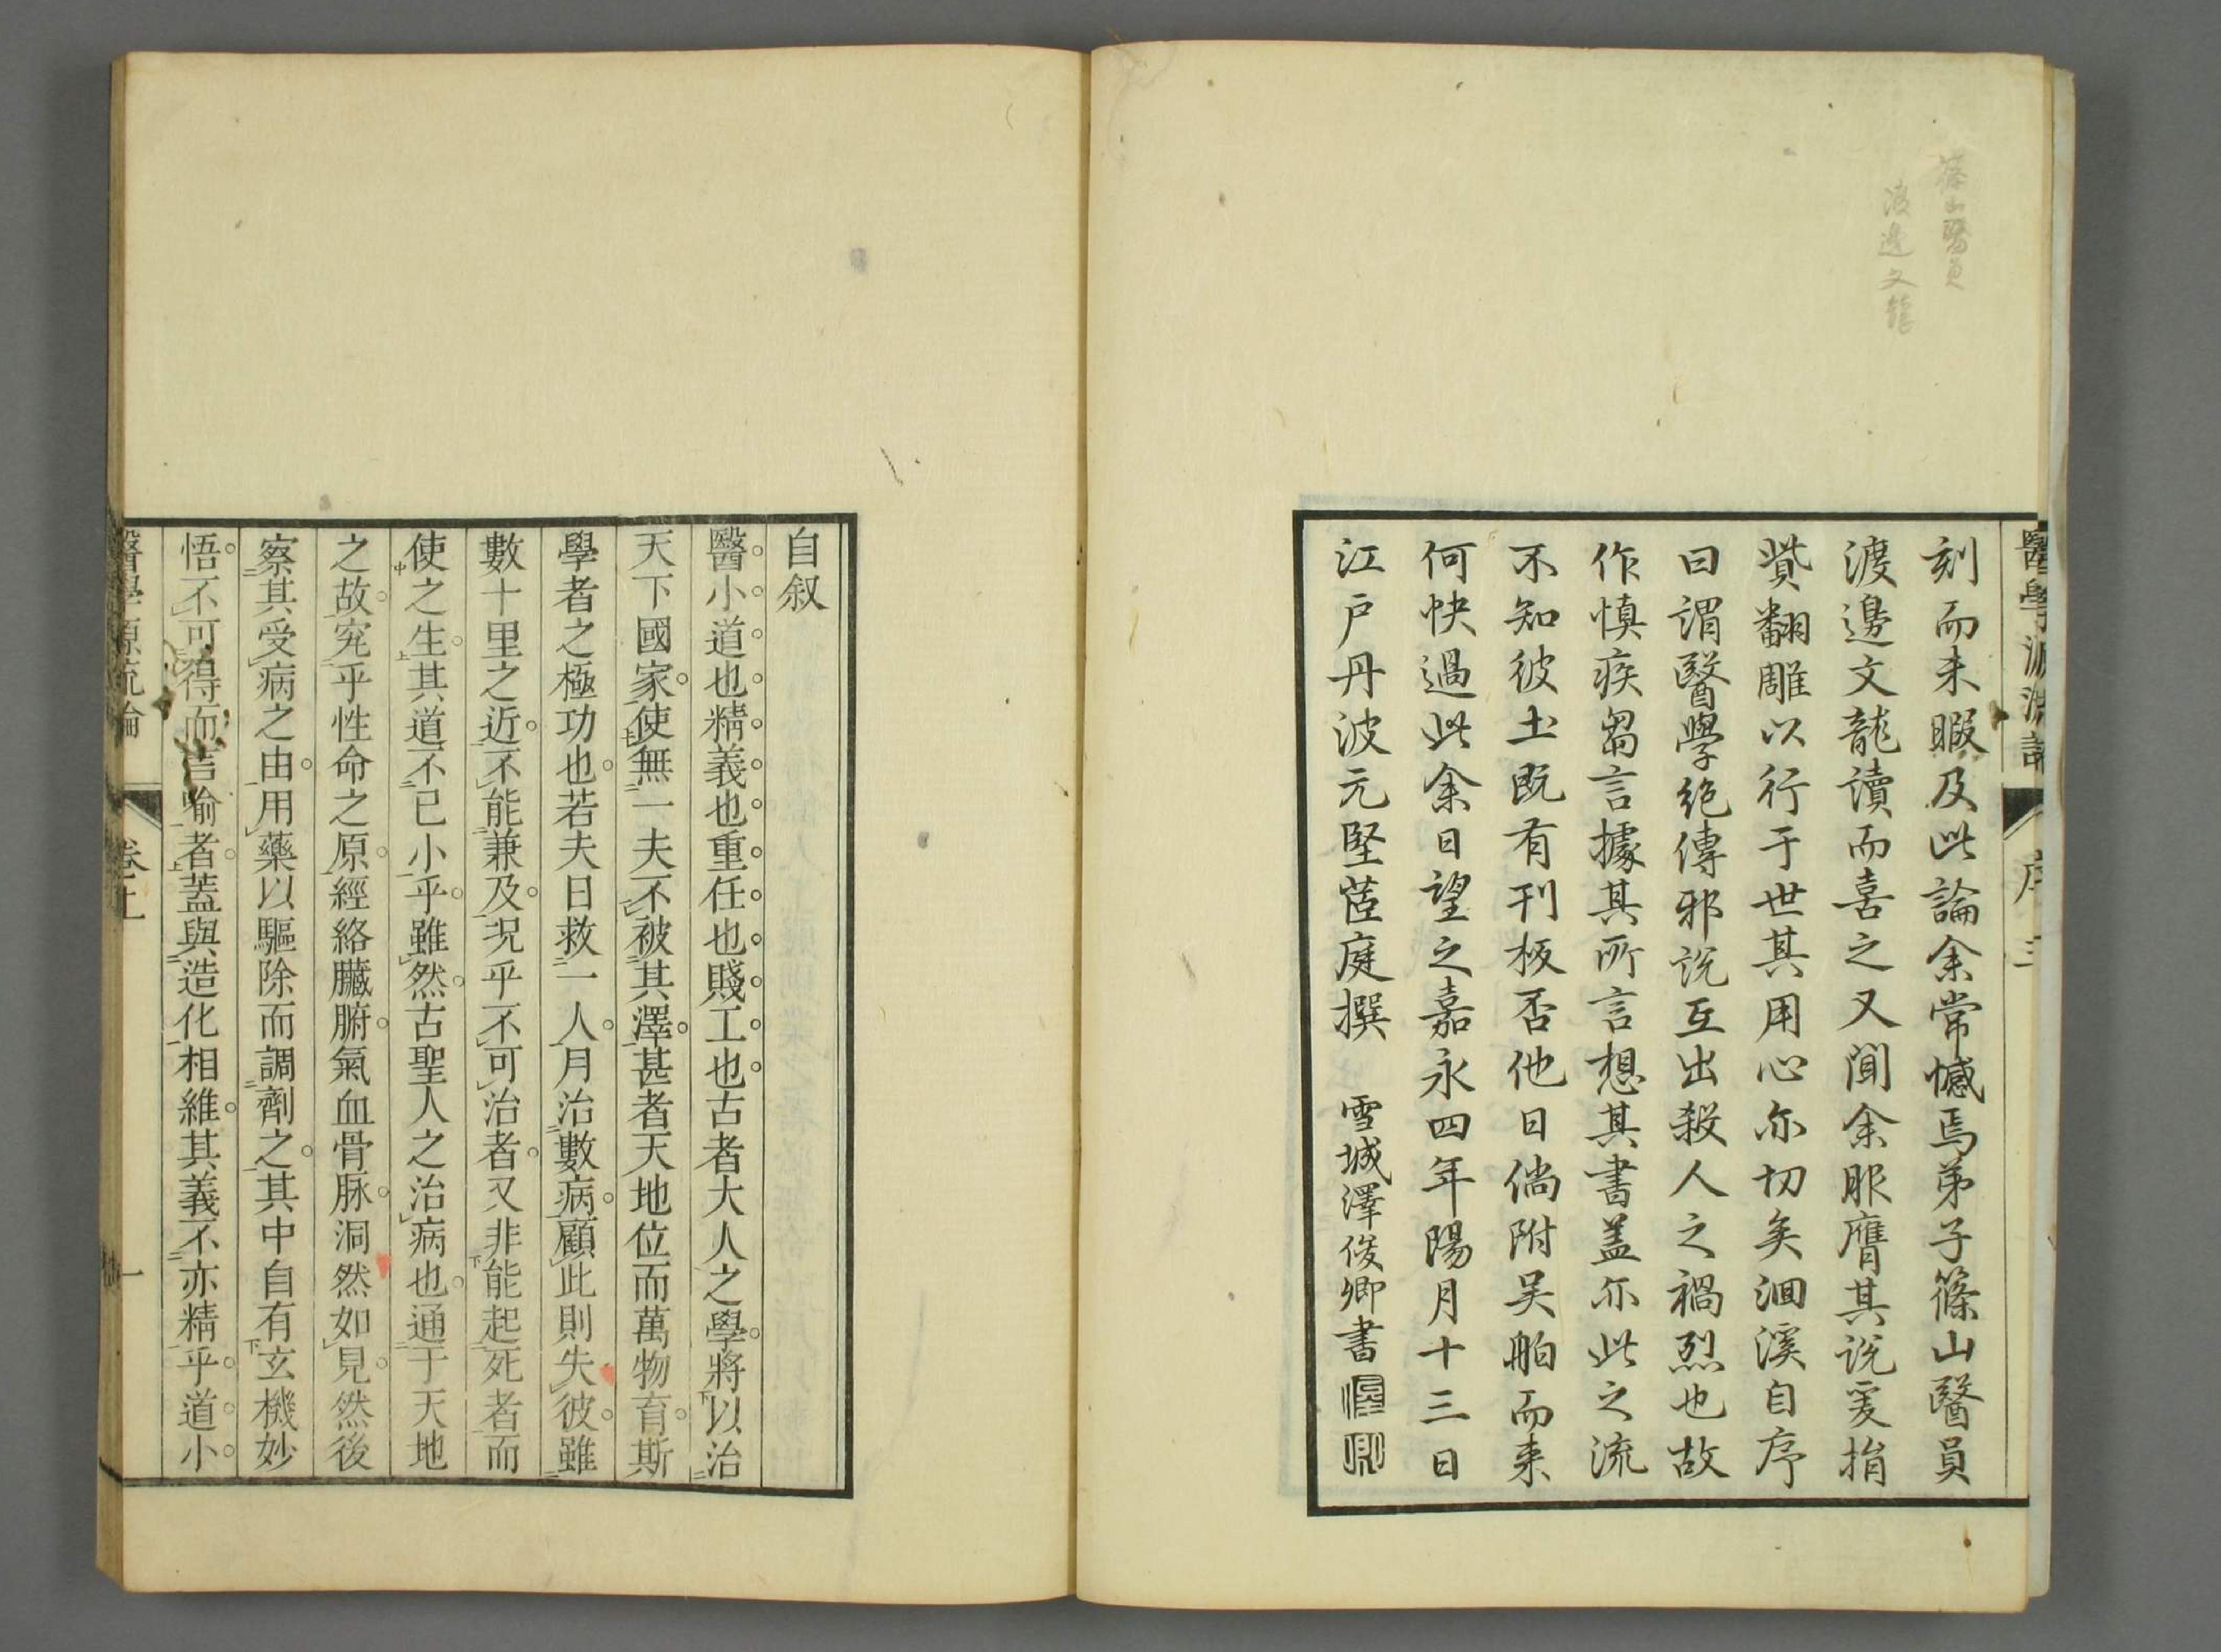 篠山醫員
渡邊文
醫學源流論 序 三
刻而未暇及此論余常憾焉弟子篠山醫員
渡邊文龍讀而喜之又聞余服膺其説爰捐
貲翻雕以行于世其用心亦切矣洄溪自序
曰謂醫學絶傳邪説互出殺人之禍烈也故
作慎疾芻言據其所言想其書蓋亦此之流
不知彼土既有刊板否他日倘附吴舶而来
何快過此余日望之嘉永四年陽月十三日
江戸丹波元堅茝庭撰 雪城澤俊卿書
自叙
醫小道也精義也重任也賤工也古者大人之學將下以治二
天下國家一使上レ無二一夫不一レ被二其澤一甚者天地位而萬物育斯
學者之極功也若夫日救二一人一月治二數病一顧レ此則失レ彼雖二
數十里之近一不レ能二兼及一况乎不レ可レ治者又非下能起二死者一而
使中之生上其道不二已小一乎雖レ然古聖人之治レ病也通二于天地
之故一究二乎性命之原一經絡臟腑氣血骨脉洞然如レ見然後
察二其受レ病之由一用レ藥以驅除而調二劑之一其中自有下玄機妙
悟不レ可二得而言喻一者上蓋與二造化一相維其義不二亦精一乎道小
醫學源流論 卷上 一